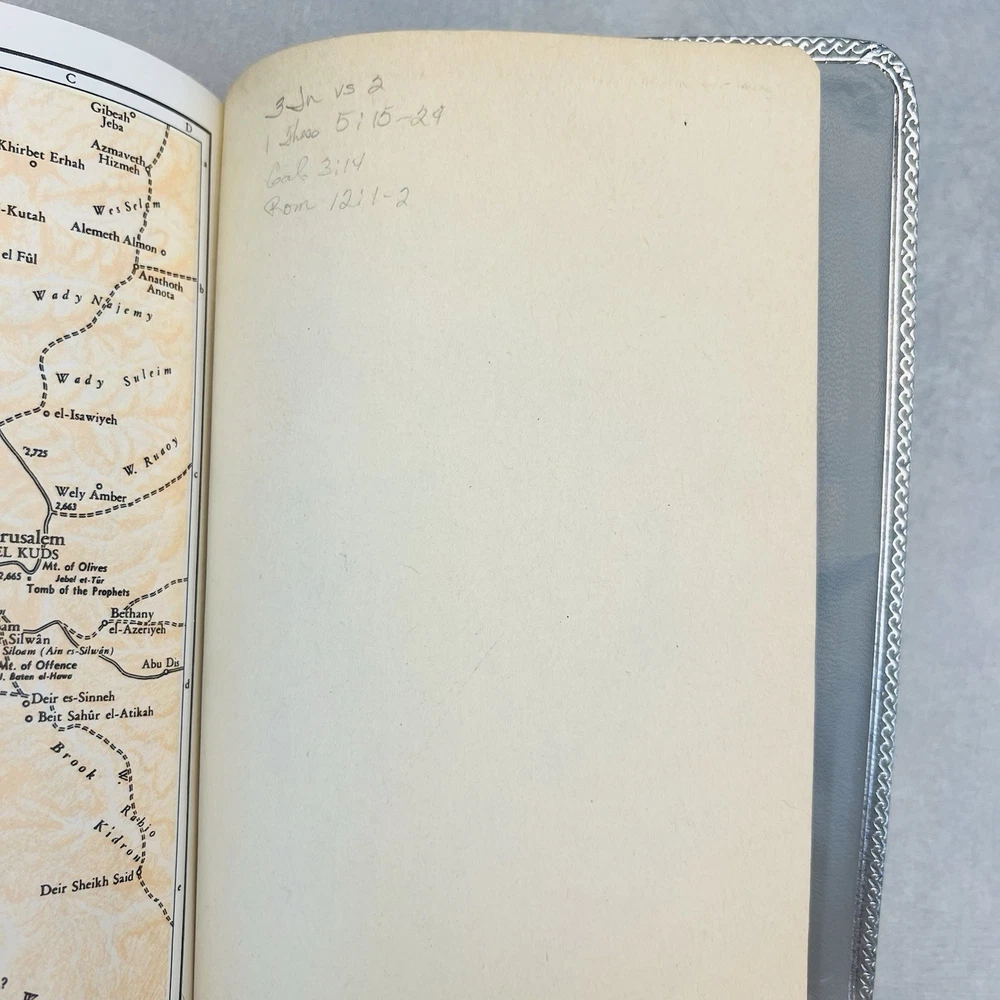 C
D
a
Gibeah
Jeba
Khirbet Erhah
Azmaveth
Hizmeh
Wes Selam
-Kutah
Alemeth Almon
el Fûl
Anathoth
Anota
b
Wady Najemy
Wady Suleim
el-Isawiyeh
2,725
W. Ruaoy
c
Wely Amber
2,663
rusalem
EL KUDS
Mt. of Olives
2,665
Jebel et-Tûr
Tomb of the Prophets
Bethany
el-Azeriyeh
am
Silwân
Siloam (Ain es-Silwân)
Mt. of Offence
Abu Dis
Baten el-Hawa
d
Deir es-Sinneh
Beit Sahûr el-Atikah
Brook
W.
Rahjo
Kidron
Deir Sheikh Said
e
?
W
3 Jn vs 2
1 Thess 5:15-24
Gal 3:14
Rom 12:1-2